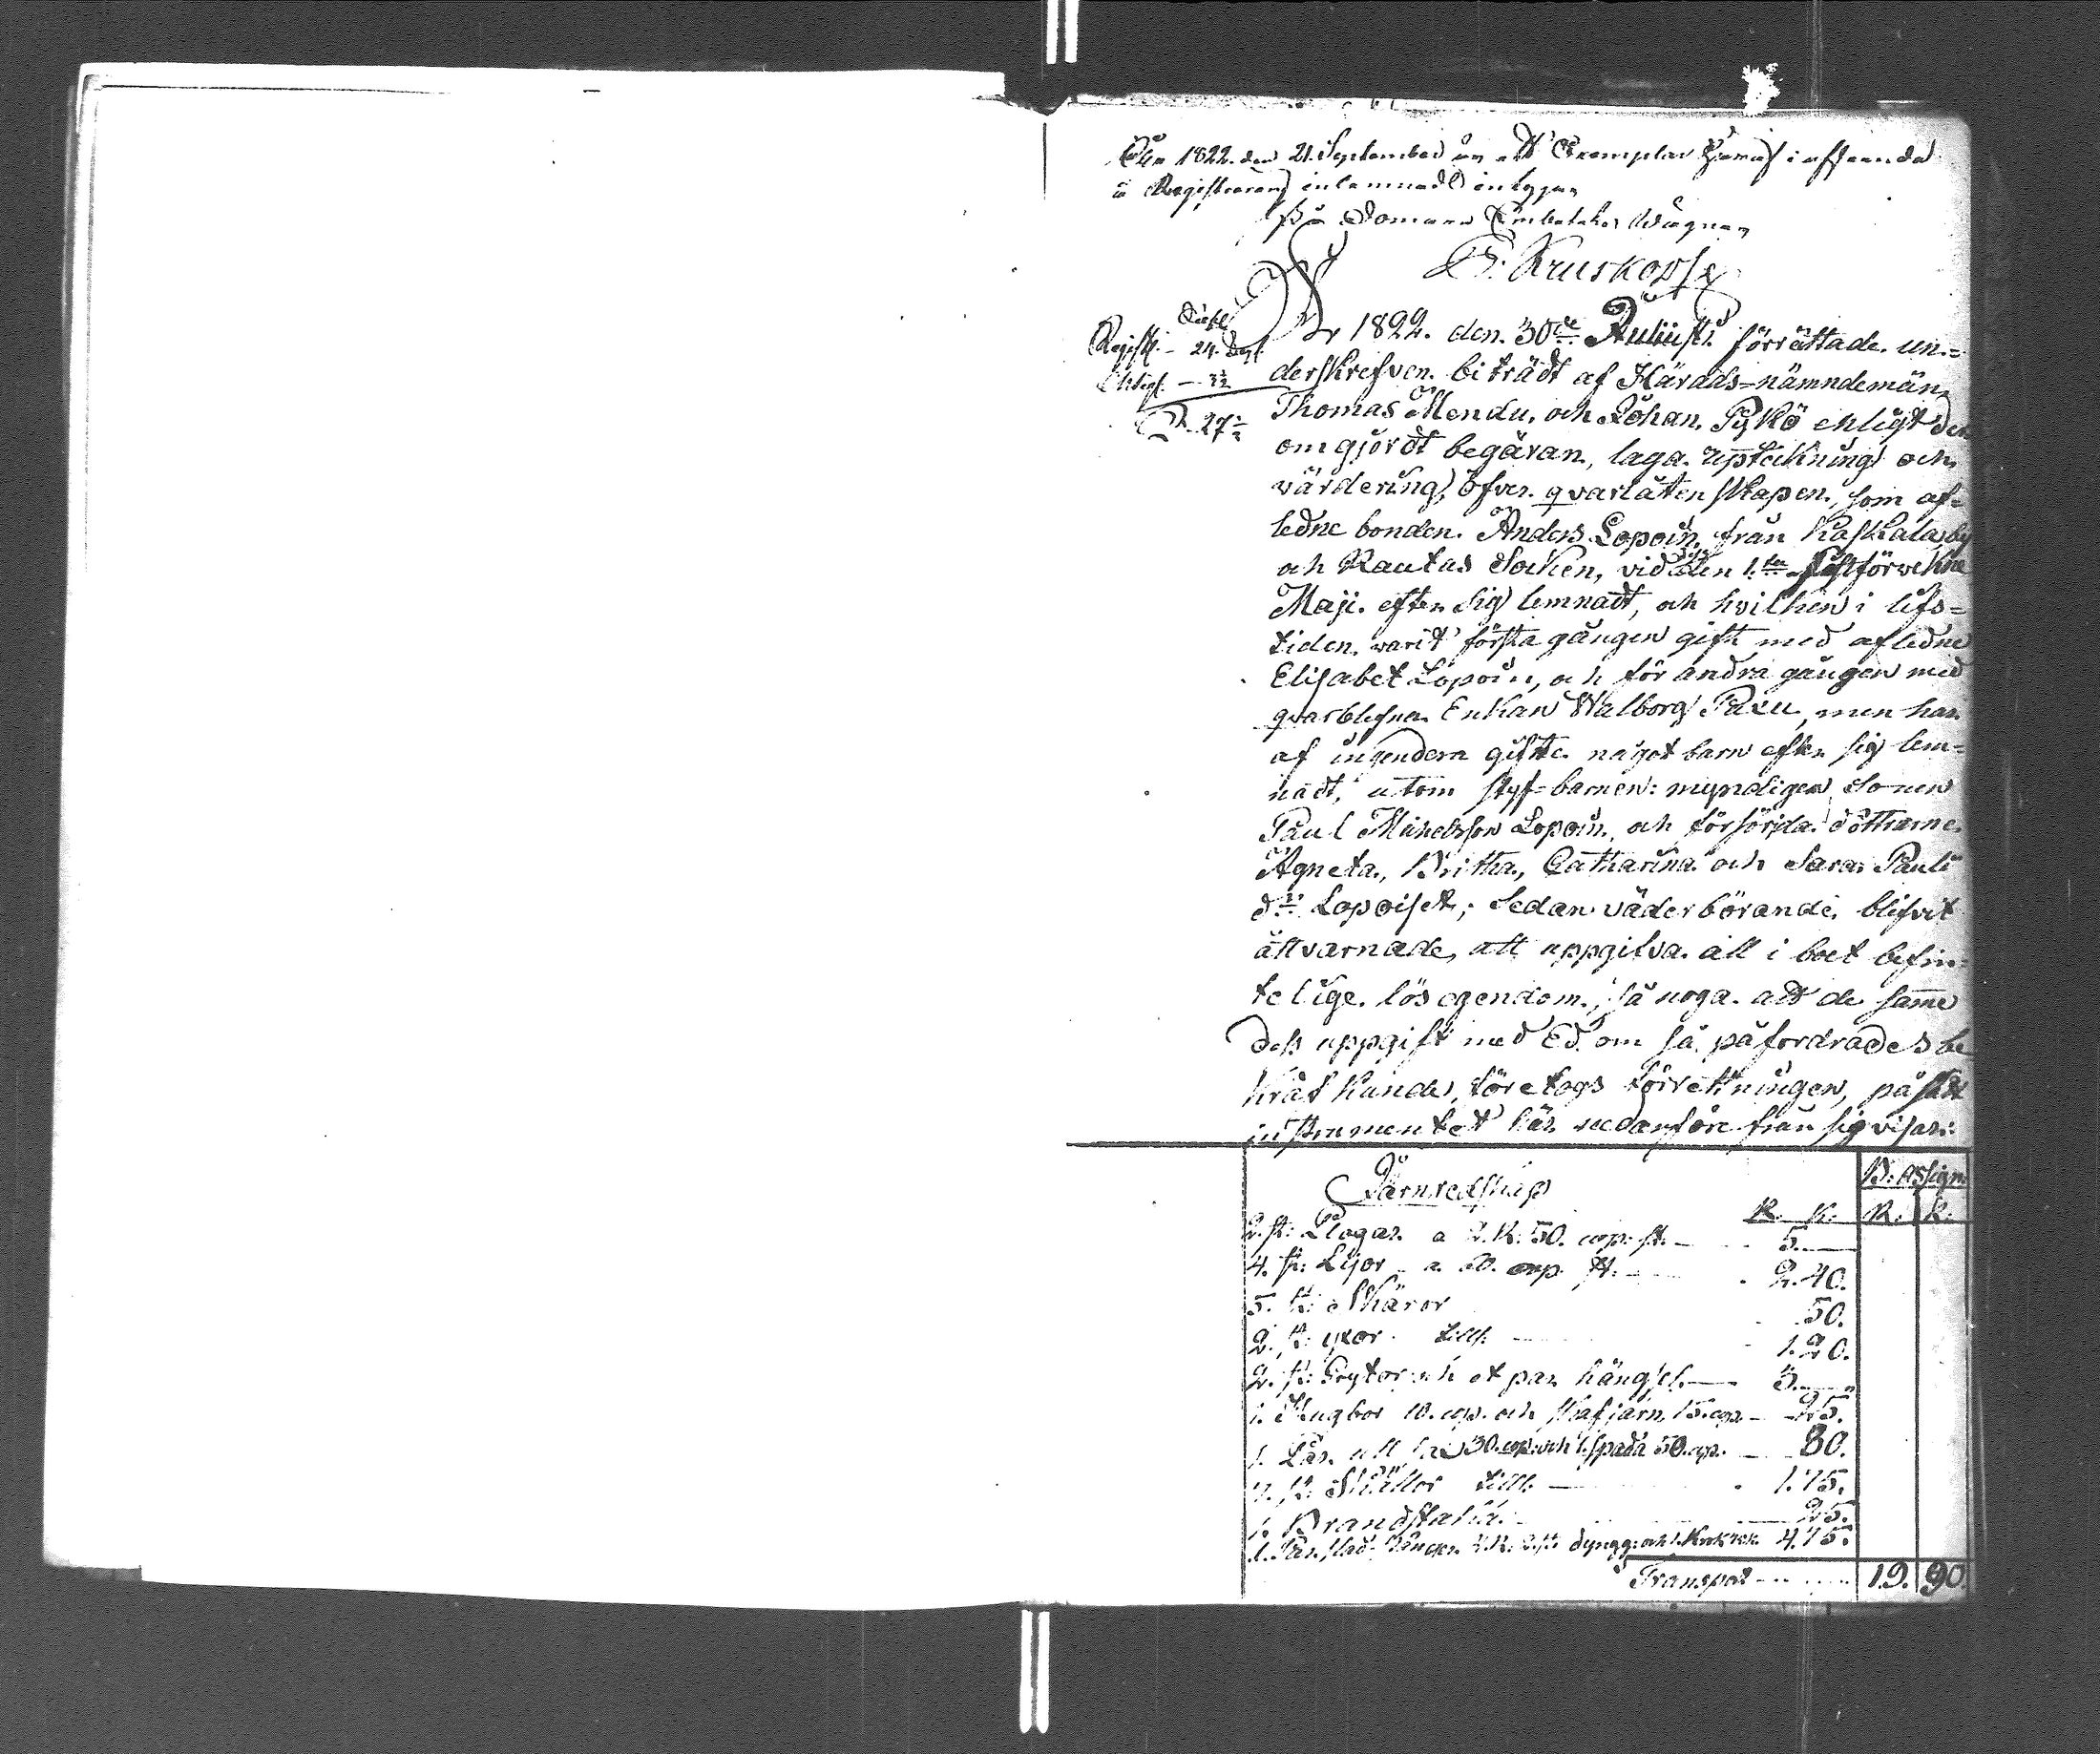 År 1822. den 21. September är ett Exemplar häraf i afseende
å Registrering inlemnadt intygar
På Domare Embetets vägnar
Kruskopf
Registr. - 24. Cop.
Chtesl. - 3½
R. 27½
År 1822. den 30de Aukusti förrättade un-
derskrefven. biträdt af Härads-nämndemän,
Thomas Mendu, och Johan Pykö enligt der
om gjordt begäran, laga upteckning och
värdering, öfver qvarlåtenskapen, som af-
ledne bonden Anders Lopoin, från Kaskala by
och Rautus Socken, vid den 1sta sistförvekne
Maji. efter sig lemnadt, och hvilken i lifs-
tiden varit första gången gift med afledne
Elisabet Lopoin, och för andra gången med
qvarblefna Enkan Walborg Paxu, men har
af ingendera gifte något barn efter sig lem-
nadt, utom styf-barnen: myndigen Sonen
Paul Michelsson Lopoin, och försörjda döttrarne
Agneta, Britha, Catharina och Sara Pauls
dr Lopoiset; Sedan väderbörande blifvit
åttvarnade, att uppgifva all i boet befin-
telige lös egendom, så noga att de samme
dess uppgift med Ed om så påfordrades be
kräf kunde, företogs förrettningen, på sätt
instrumentet här nedanföre från sig visar:
Järnredskap
B: Assign
R. K. R. K.
2. st: Plogar a 2. R: 50. cop: st. - 5.—
4. st: Lijor a 60. cop. st. - 2. 40.
5. st: Skäror 50.
2. st: yxor tills. - 1. 20.
2. st: Grytor och et par hängsel - 3.—
1. Hugbor 10. cop. och skafjärn 15. cop. - 25.
1. Lås 30. cop. och 1. spada 50. cop. - 80.
st: Skällor tills. - 1. 75.
1. Brandstaka - 25.
1. Par 2. st. dyngg: och 1. Krok 4. 75.
Transport - 19. 90.